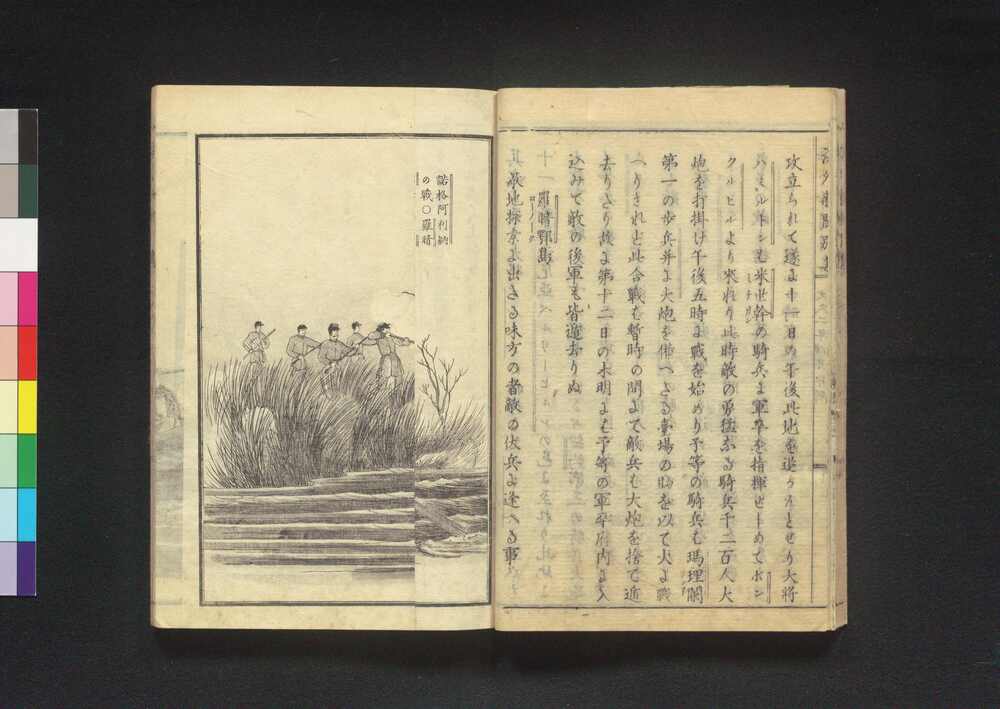 攻立られて遂に十一日の午後此地を退うんとせり大将
ハミルトンも米世幹の騎兵に軍卒を指揮せしめてボン
クルヒルより来れり此時敵の勇猛なる騎兵千二百人大
炮を打掛け午後五時に戦を始めり予等の騎兵も瑪理蘭
第一の歩兵并に大炮を備へたる臺場の助を以て大に戦
へりされど此合戦も暫時の間にて敵兵も大炮を捨て逃
去りたり故に第十二日の未明にも予等の軍卒府内に入
込みて敵の後軍も皆遁去りぬ
十一
羅晴鄂島
其敵地探索に出たる味方の者敵の伏兵に逢へる事
諾格阿利納
の戦○羅晴